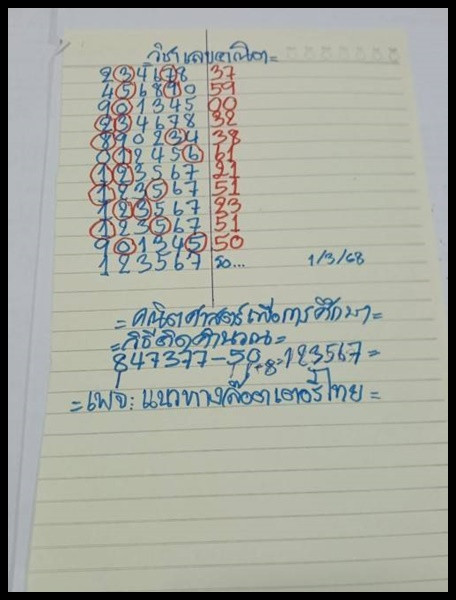 = วิชาเลขคณิต =
2 3 4 6 7 8 37
4 5 6 8 9 0 59
9 0 1 3 4 5 00
2 3 4 6 7 8 32
8 9 0 2 3 4 38
0 1 2 4 5 6 61
1 2 3 5 6 7 21
1 2 3 5 6 7 51
1 2 3 5 6 7 23
1 2 3 5 6 7 51
9 0 1 3 4 5 50
1 2 3 5 6 7 รอ... 1/3/68
= คณิตศาสตร์เพื่อการศึกษา =
= วิธีคิดคำนวณ =
847377-50 1+8=123567=
= เพจ: แนวทางล็อตเตอรี่ไทย =